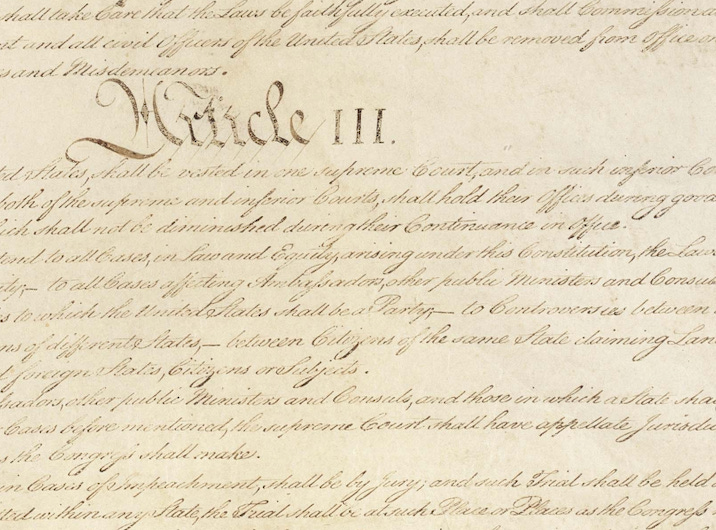 shall take Care that the Laws be faithfully executed, and shall Commission a
nt and all civil Officers of the United States, shall be removed from Office o
s and Misdemeanors.
Article III.
ted States, shall be vested in one supreme Court, and in such inferior Co
both of the supreme and inferior Courts, shall hold their Offices during good
ich shall not be diminished during their Continuance in Office.
tend to all Cases, in Law and Equity, arising under this Constitution, the Laws
ty;— to all Cases affecting Ambassadors, other public Ministers and Consuls
s to which the United States shall be a Party;— to Controversies between
ns of different States,— between Citizens of the same State claiming Lan
d foreign States, Citizens or Subjects.
ssadors, other public Ministers and Consuls, and those in which a State sha
r Cases before mentioned, the supreme Court shall have appellate Jurisdic
s the Congress shall make.
in Cases of Impeachment, shall be by Jury; and such Trial shall be held
ted within any State, the Trial shall be at such Place or Places as the Congress